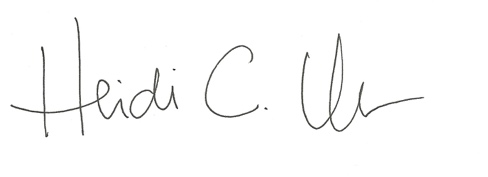 Heidi C.